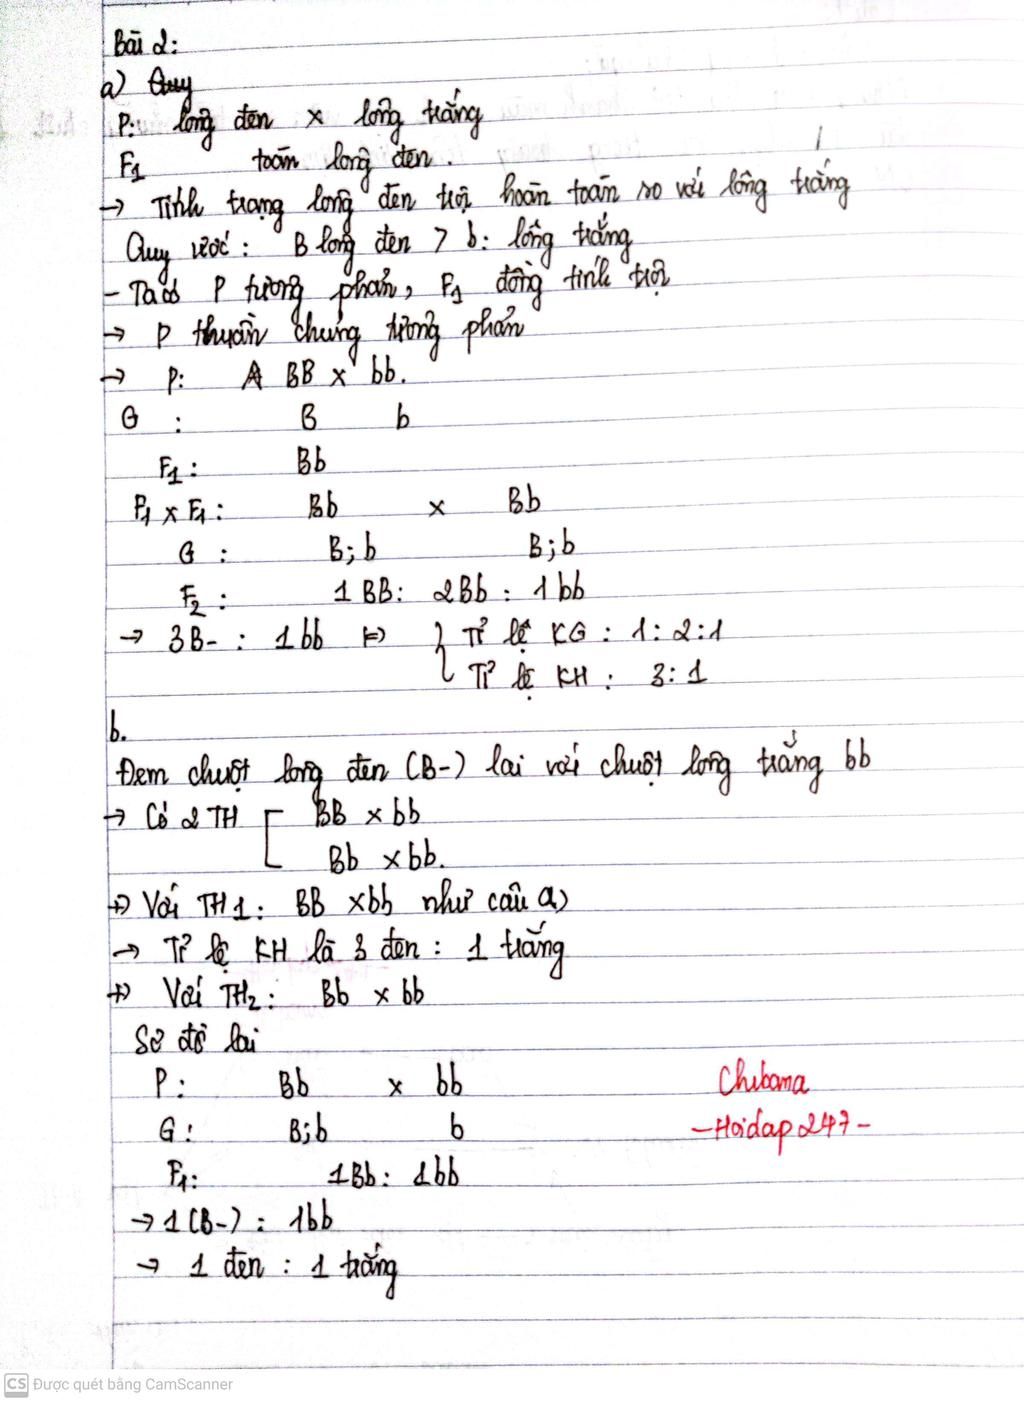 Bài 2:
a) Quy
P: lông đen x lông trắng
F1 toàn lông đen
→ Tính trạng lông đen trội hoàn toàn so với lông trắng
Quy ước: B lông đen > b: lông trắng
- Ta có P tương phản, F1 đồng tính trội
→ P thuần chủng tương phản
→ P: A BB x bb.
G : B b
F1: Bb
F1 x F1: Bb x Bb
G : B; b B; b
F2: 1 BB: 2Bb: 1bb
→ 3B- : 1bb ⇔ { Tỉ lệ KG: 1:2:1
Tỉ lệ KH: 3:1
b.
Đem chuột lông đen (B-) lai với chuột lông trắng bb
→ Có 2 TH [ BB x bb
Bb x bb.
+) Với TH1: BB x bb như câu a)
→ Tỉ lệ KH là 3 đen: 1 trắng
+) Với TH2: Bb x bb
Sơ đồ lai
P: Bb x bb
G: B;b b
F1: 1Bb: 1bb
→ 1(B-): 1bb
→ 1 đen : 1 trắng
Chibana
-Hoidap247-
CS Được quét bằng CamScanner